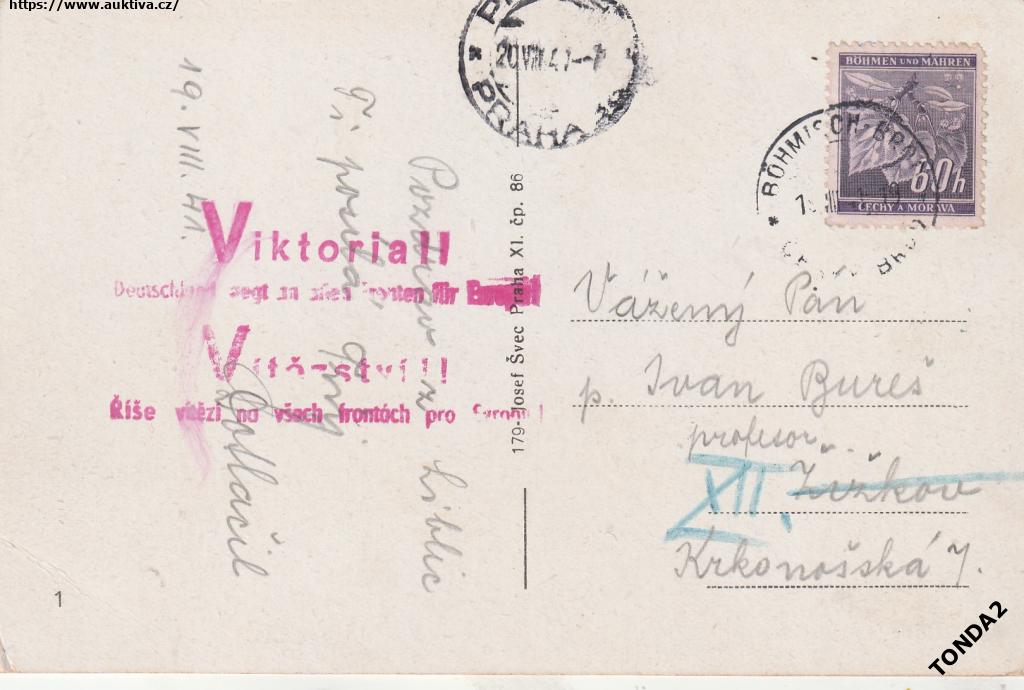 https://www.auktiva.cz/
PRAHA
20 VIII 41
BÖHMEN UND MÄHREN
60h
ČECHY A MORAVA
BÖHMISCH-BROD
19. VIII. 41.
Pozdrav z Liblic
Ti posílá
Dotlačil
Viktoria!!
Deutschland siegt an allen Fronten für Europa!
Vítězství!!
Říše vítězí na všech frontách pro Evropu!
179-Josef Švec Praha XI. čp. 86
Vážený Pán
p. Ivan Bureš
profesor
XII. Žižkov
Krkonošská 7.
1
TONDA2